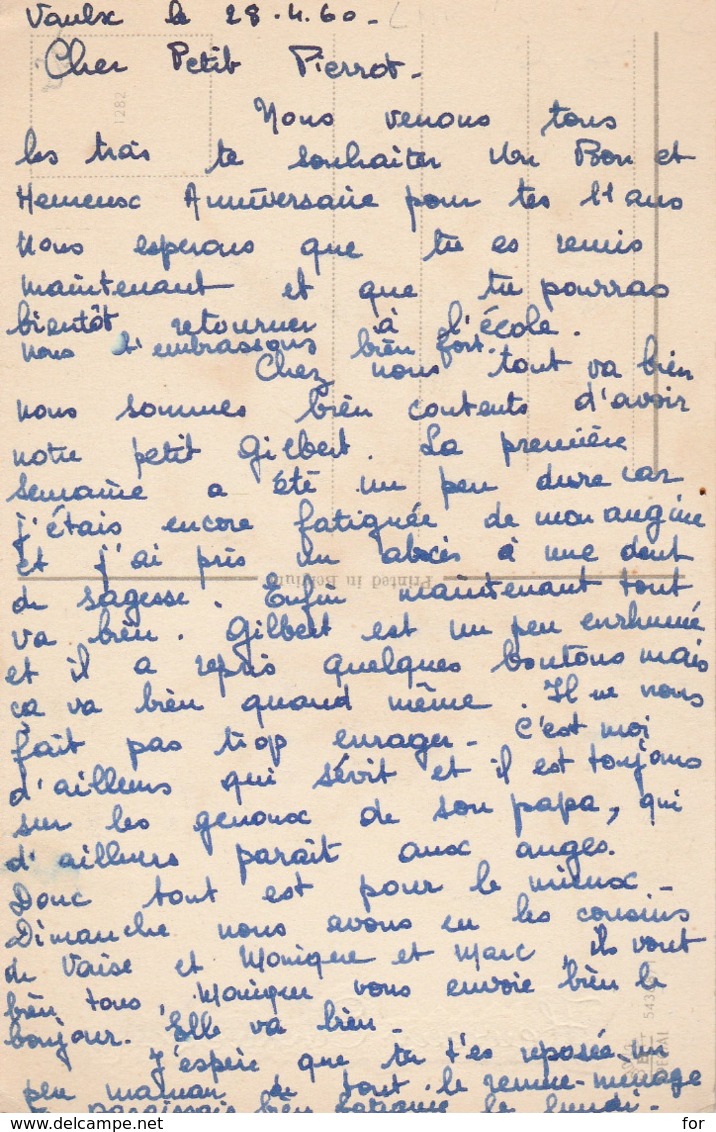 Vaulx le 28.4.60-
Cher Petit Pierrot-
Nous venons tous
les trois te souhaiter Un Bon et
Heureux Anniversaire pour tes 11 ans
Nous esperons que tu es remis
maintenant et que tu pourras
bientôt retourner à l'école.
nous t'embrassons bien fort.
Chez nous tout va bien
nous sommes bien contents d'avoir
notre petit Gilbert. La première
semaine a été un peu dure car
j'étais encore fatiguée de mon angine
et j'ai pris un abcès à une dent
de sagesse. Enfin maintenant tout
va bien. Gilbert est un peu enrhumé
et il a repris quelques boutons mais
ça va bien quand même. Il ne nous
fait pas trop enrager- C'est moi
d'ailleurs qui sévit et il est toujours
sur les genoux de son papa, qui
d'ailleurs parait aux anges.
Donc tout est pour le mieux-
Dimanche nous avons eu les cousins
de Vaise et Monique et Marc, ils vont
bien tous, Monique vous envoie bien le
bonjour. Elle va bien-
J'espère que tu t'es reposée un
peu maman de tout le remue-ménage
tu paraissais bien fatiguée le lundi-
1282
Printed in Belgium
543
www.delcampe.net
for